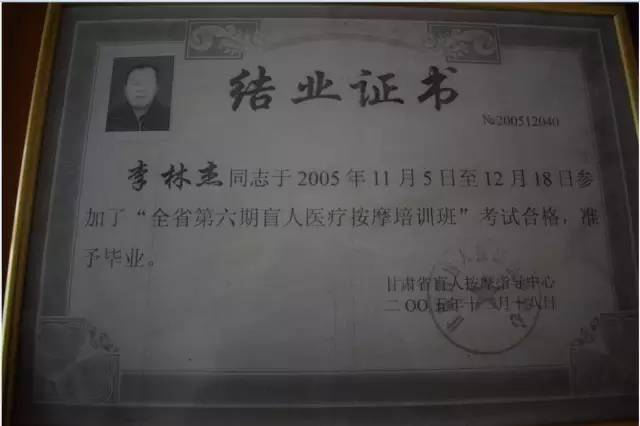 结业证书
№200512040
李林杰同志于 2005 年 11 月 5 日至 12 月 18 日参
加了“全省第六期盲人医疗按摩培训班”考试合格，准
予毕业。
甘肃省盲人按摩指导中心
二〇〇五年十二月十八日